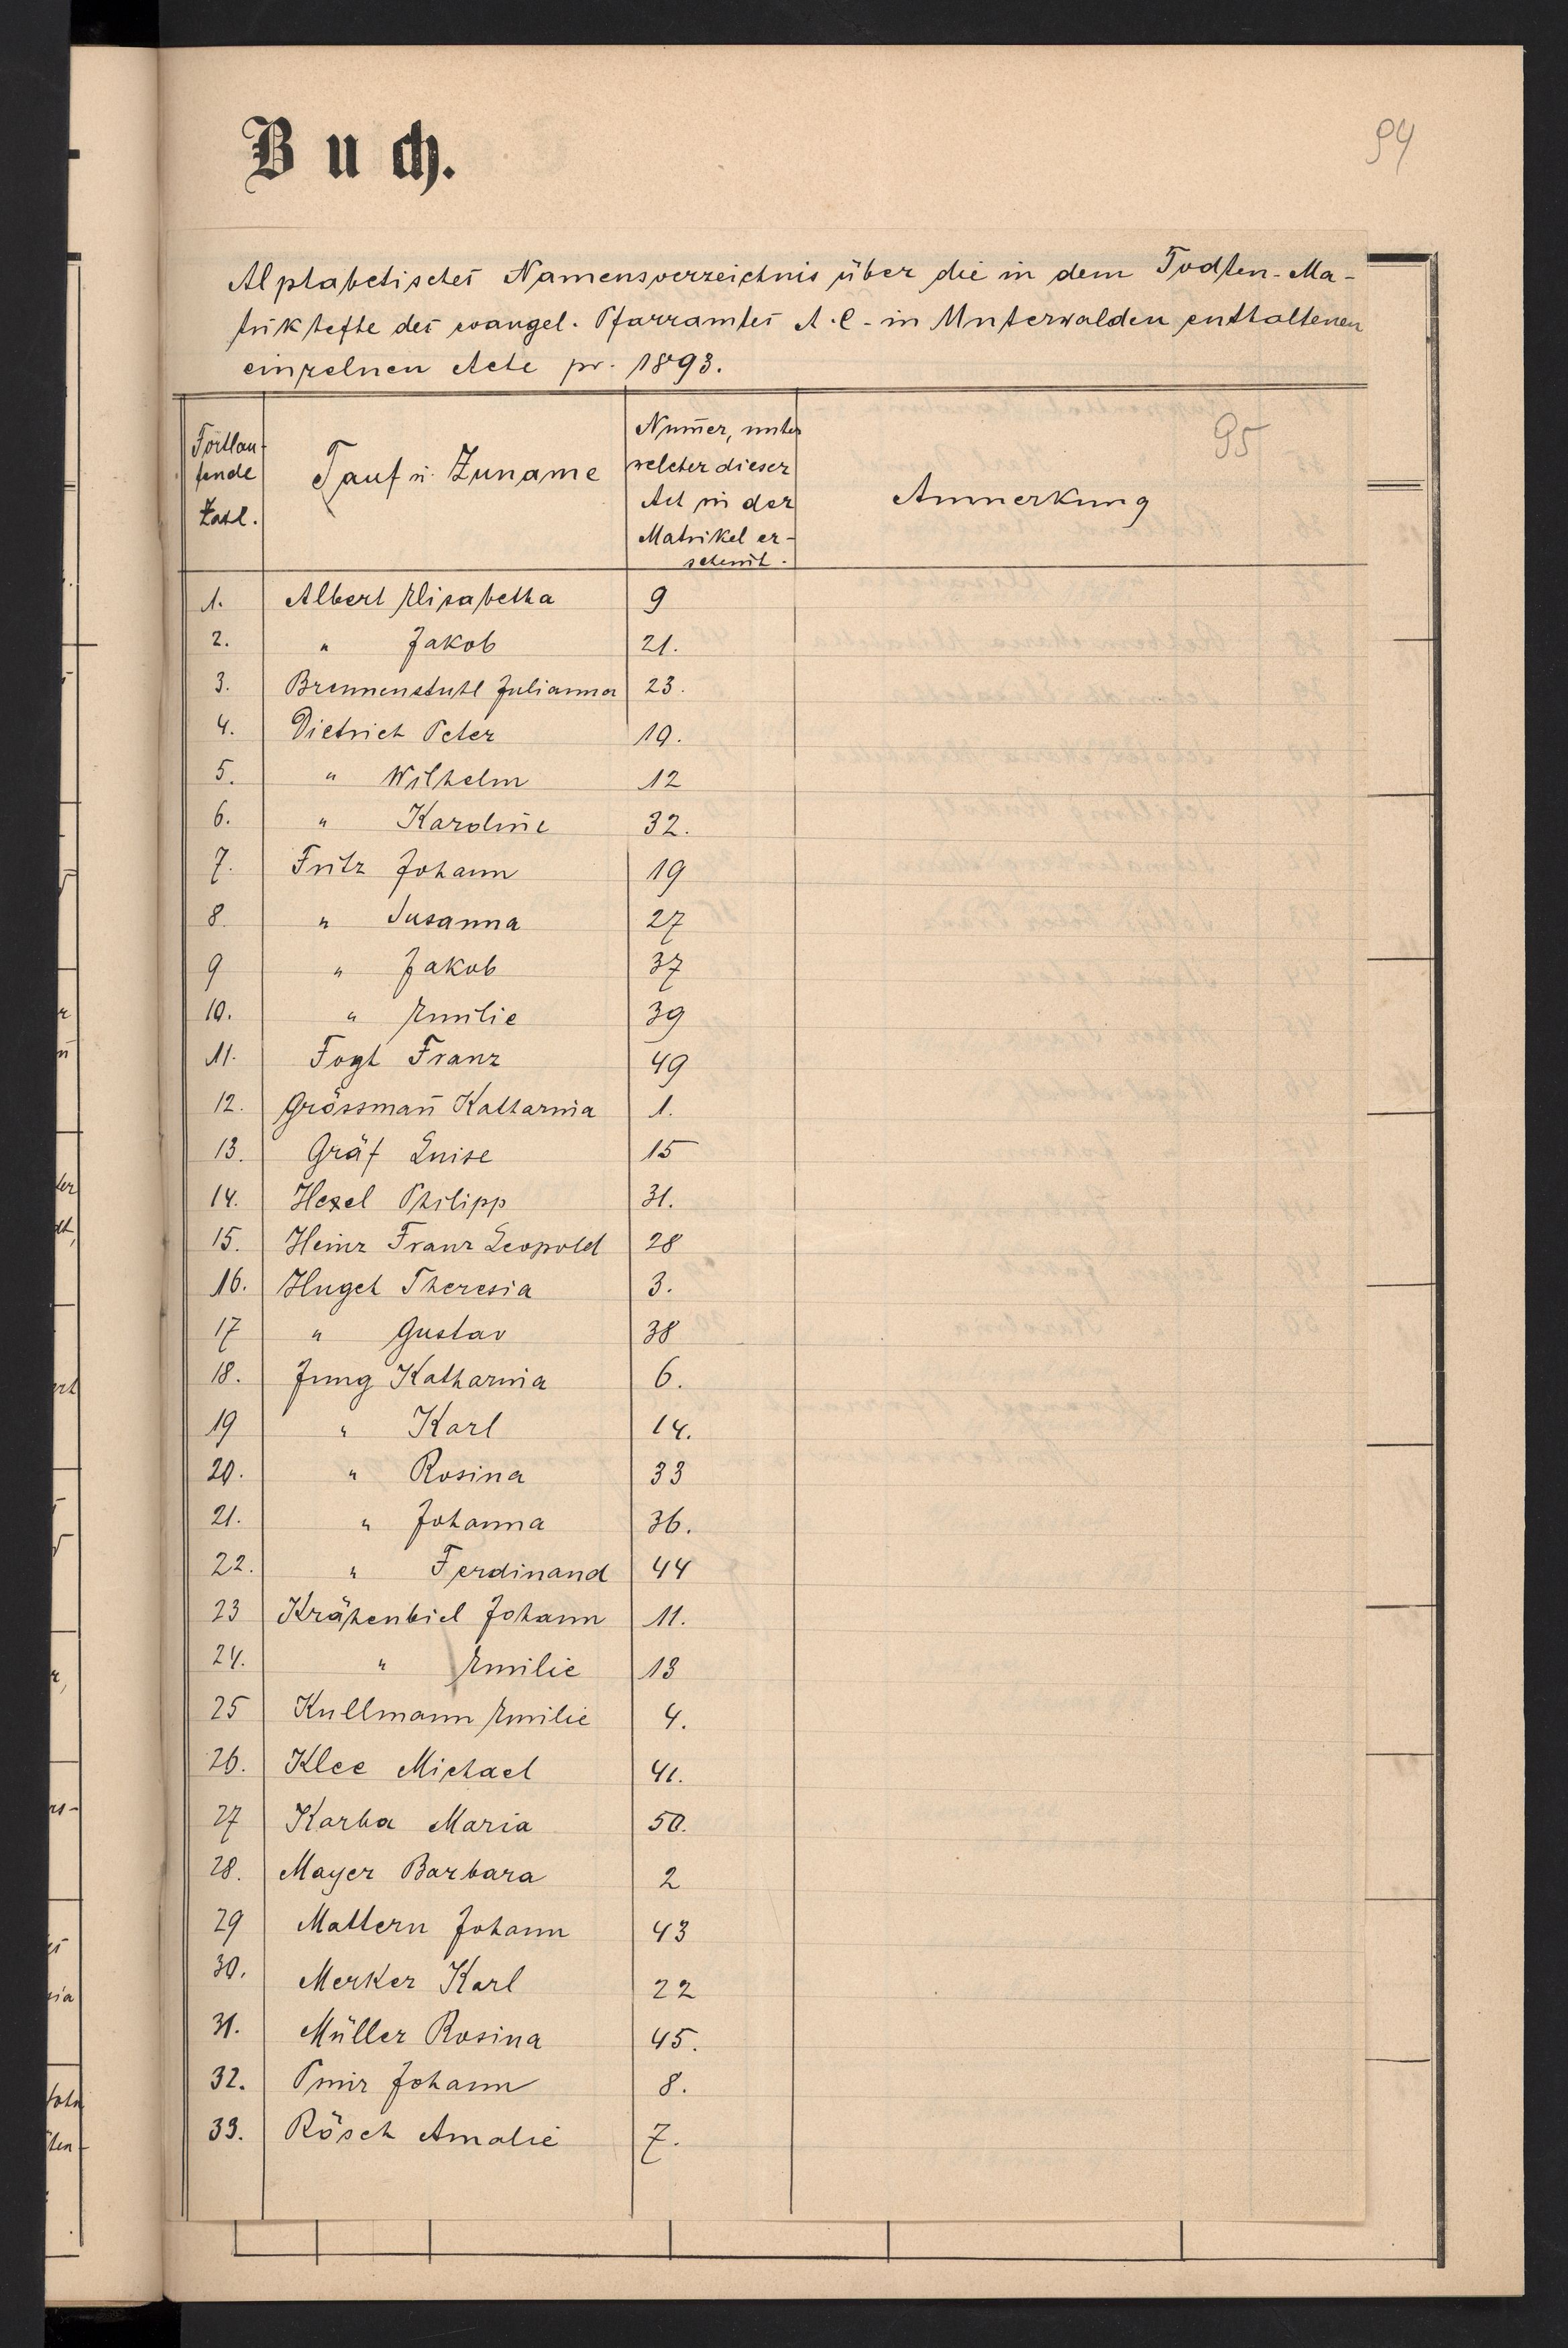 Buch.
94
Alphabetisches Namensverzeichnis über die in dem Todten-Ma-
trikhefte des evangel. Pfarramtes A.C. in Unterwalden enthaltenen
einzelnen Acte pr. 1893.
Fortlau-
fende
Zahl.
Tauf u. Zuname
Num̄er, unter
welcher dieser
Act in der
Matrikel er-
scheint.
95
Anmerkung
1. Albert Elisabetha 9
2. " Jakob 21.
3. Brennenstuhl Julianna 23.
4. Dietrich Peter 10.
5. " Wilhelm 12
6. " Karoline 32.
7. Fritz Johann 19
8. " Susanna 27
9 " Jakob 37
10. " Emilie 39
11. Fogt Franz 49
12. Grössman̄ Katharina 1.
13. Gräf Luise 15
14. Hexel Philipp 31.
15. Heinz Franz Leopold 28
16. Hugel Theresia 3.
17 " Gustav 38
18. Jung Katharina 6.
19 " Karl 14.
20. " Rosina 33
21. " Johanna 36.
22. " Ferdinand 44
23 Krähenbiel Johann 11.
24. " Emilie 13
25 Kullmann Emilie 4.
26. Klee Michael 41.
27 Karba Maria 50.
28. Mayer Barbara 2
29 Mattern Johann 43
30. Merker Karl 22
31. Müller Rosina 45.
32. Johann 8.
33. Rösch Amalie 7.